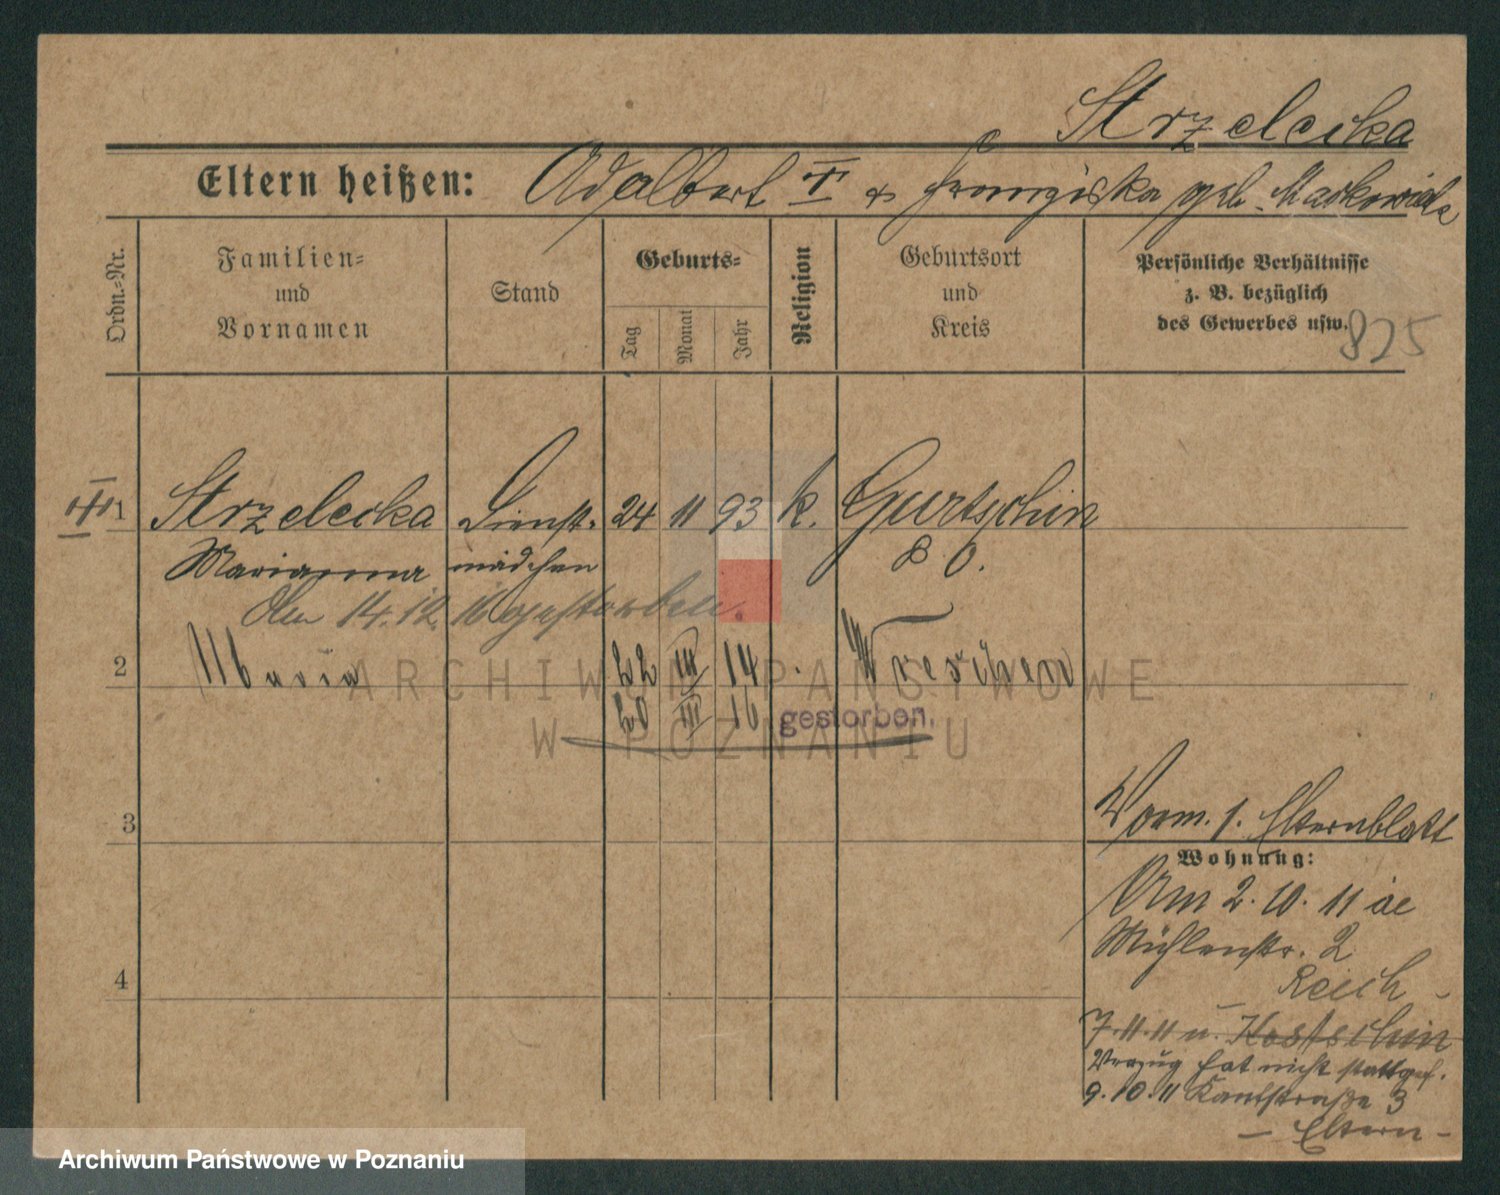 Strzelecka
Eltern heißen: Adalbert III & Franziska geb. Markowicz
Ordn.-Nr.
Familien- und Vornamen
Stand
Geburts-
Tag
Monat
Jahr
Religion
Geburtsort und Kreis
Persönliche Verhältnisse
z. B. bezüglich
des Gewerbes usw.
825
III 1 Strzelecka Dienst- 24 11 93 k. Gurtschin
Marianna mädchen P. O.
Am 14.12.16 gestorben.
2 Maria 22 III 14 Wreschen
20 III 16 gestorben.
3
Vorm. 1. Elternblatt
Wohnung:
Am 2.10.11
Mühlenstr. 2
Reich -
4
7.11.11 n. Kostschin
Verzug hat nicht stattgef.
9.10.11 Kantstraße 3
- Eltern -
ARCHIWUM PAŃSTWOWE
W POZNANIU
Archiwum Państwowe w Poznaniu